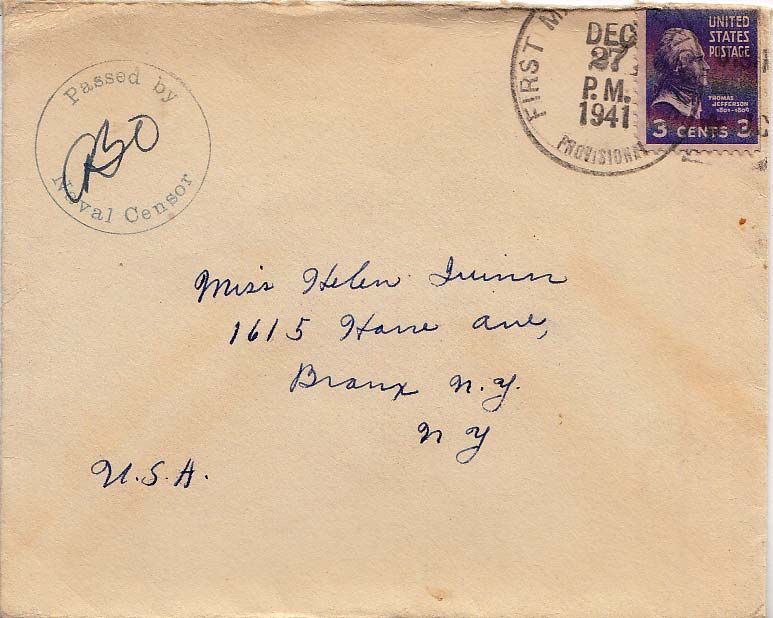 Passed by
Naval Censor
FIRST M
DEC
27
P.M.
1941
PROVISIONAL
UNITED
STATES
POSTAGE
THOMAS
JEFFERSON
1801-1809
3 CENTS 3
Miss Helen Quinn
1615 Hone Ave,
Bronx N.Y.
N Y
U.S.A.